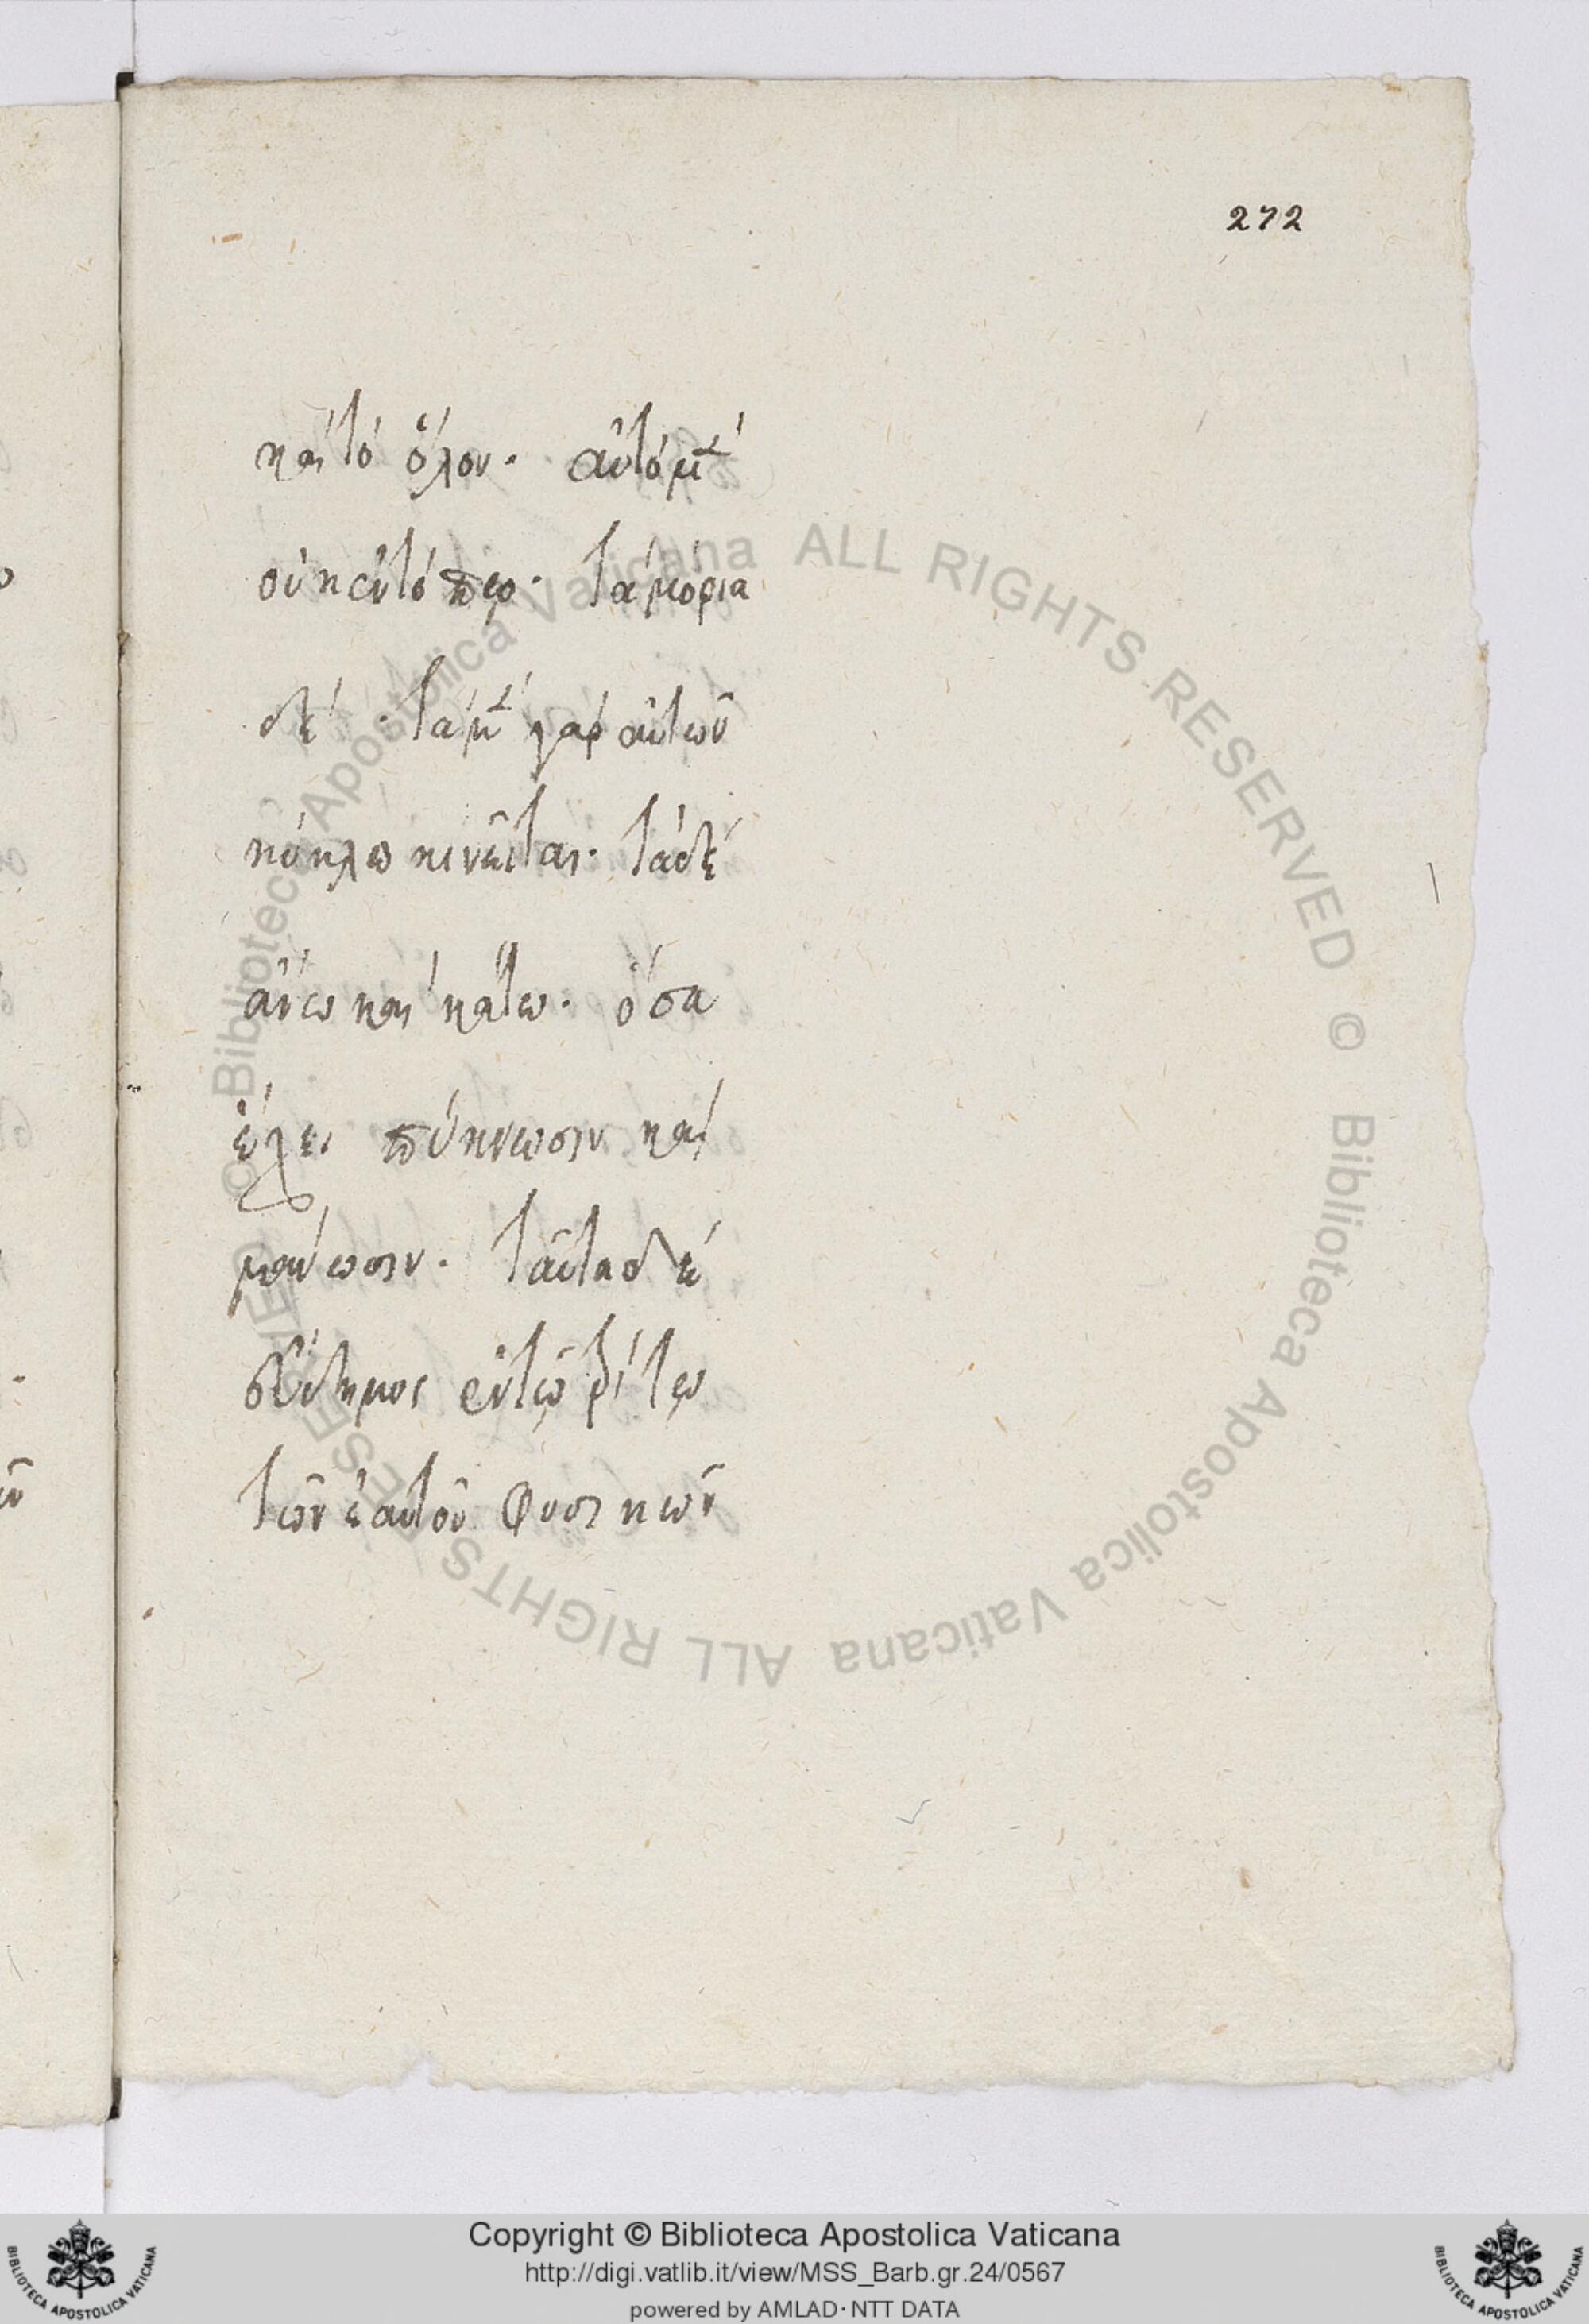 272
καὶ τὸ ὅλον. αὐτὸ μὲν
οὐκ ἐν τόπῳ. τὰ μόρια
δέ. τὰ μὲν γὰρ αὐτῶν
κύκλω κινεῖται. τὰ δὲ
ἄνω καὶ κάτω. ὅσα
ἔχει πύκνωσιν καὶ
μάνωσιν. ταῦτα δὲ
εὔδημος ἐν τῷ τρίτῳ
τῶν ἑαυτοῦ φυσικῶν
© Biblioteca Apostolica Vaticana ALL RIGHTS RESERVED © Biblioteca Apostolica Vaticana ALL RIGHTS RESERVED
Copyright © Biblioteca Apostolica Vaticana
http://digi.vatlib.it/view/MSS_Barb.gr.24/0567
powered by AMLAD·NTT DATA
BIBLIOTECA APOSTOLICA VATICANA
BIBLIOTECA APOSTOLICA VATICANA